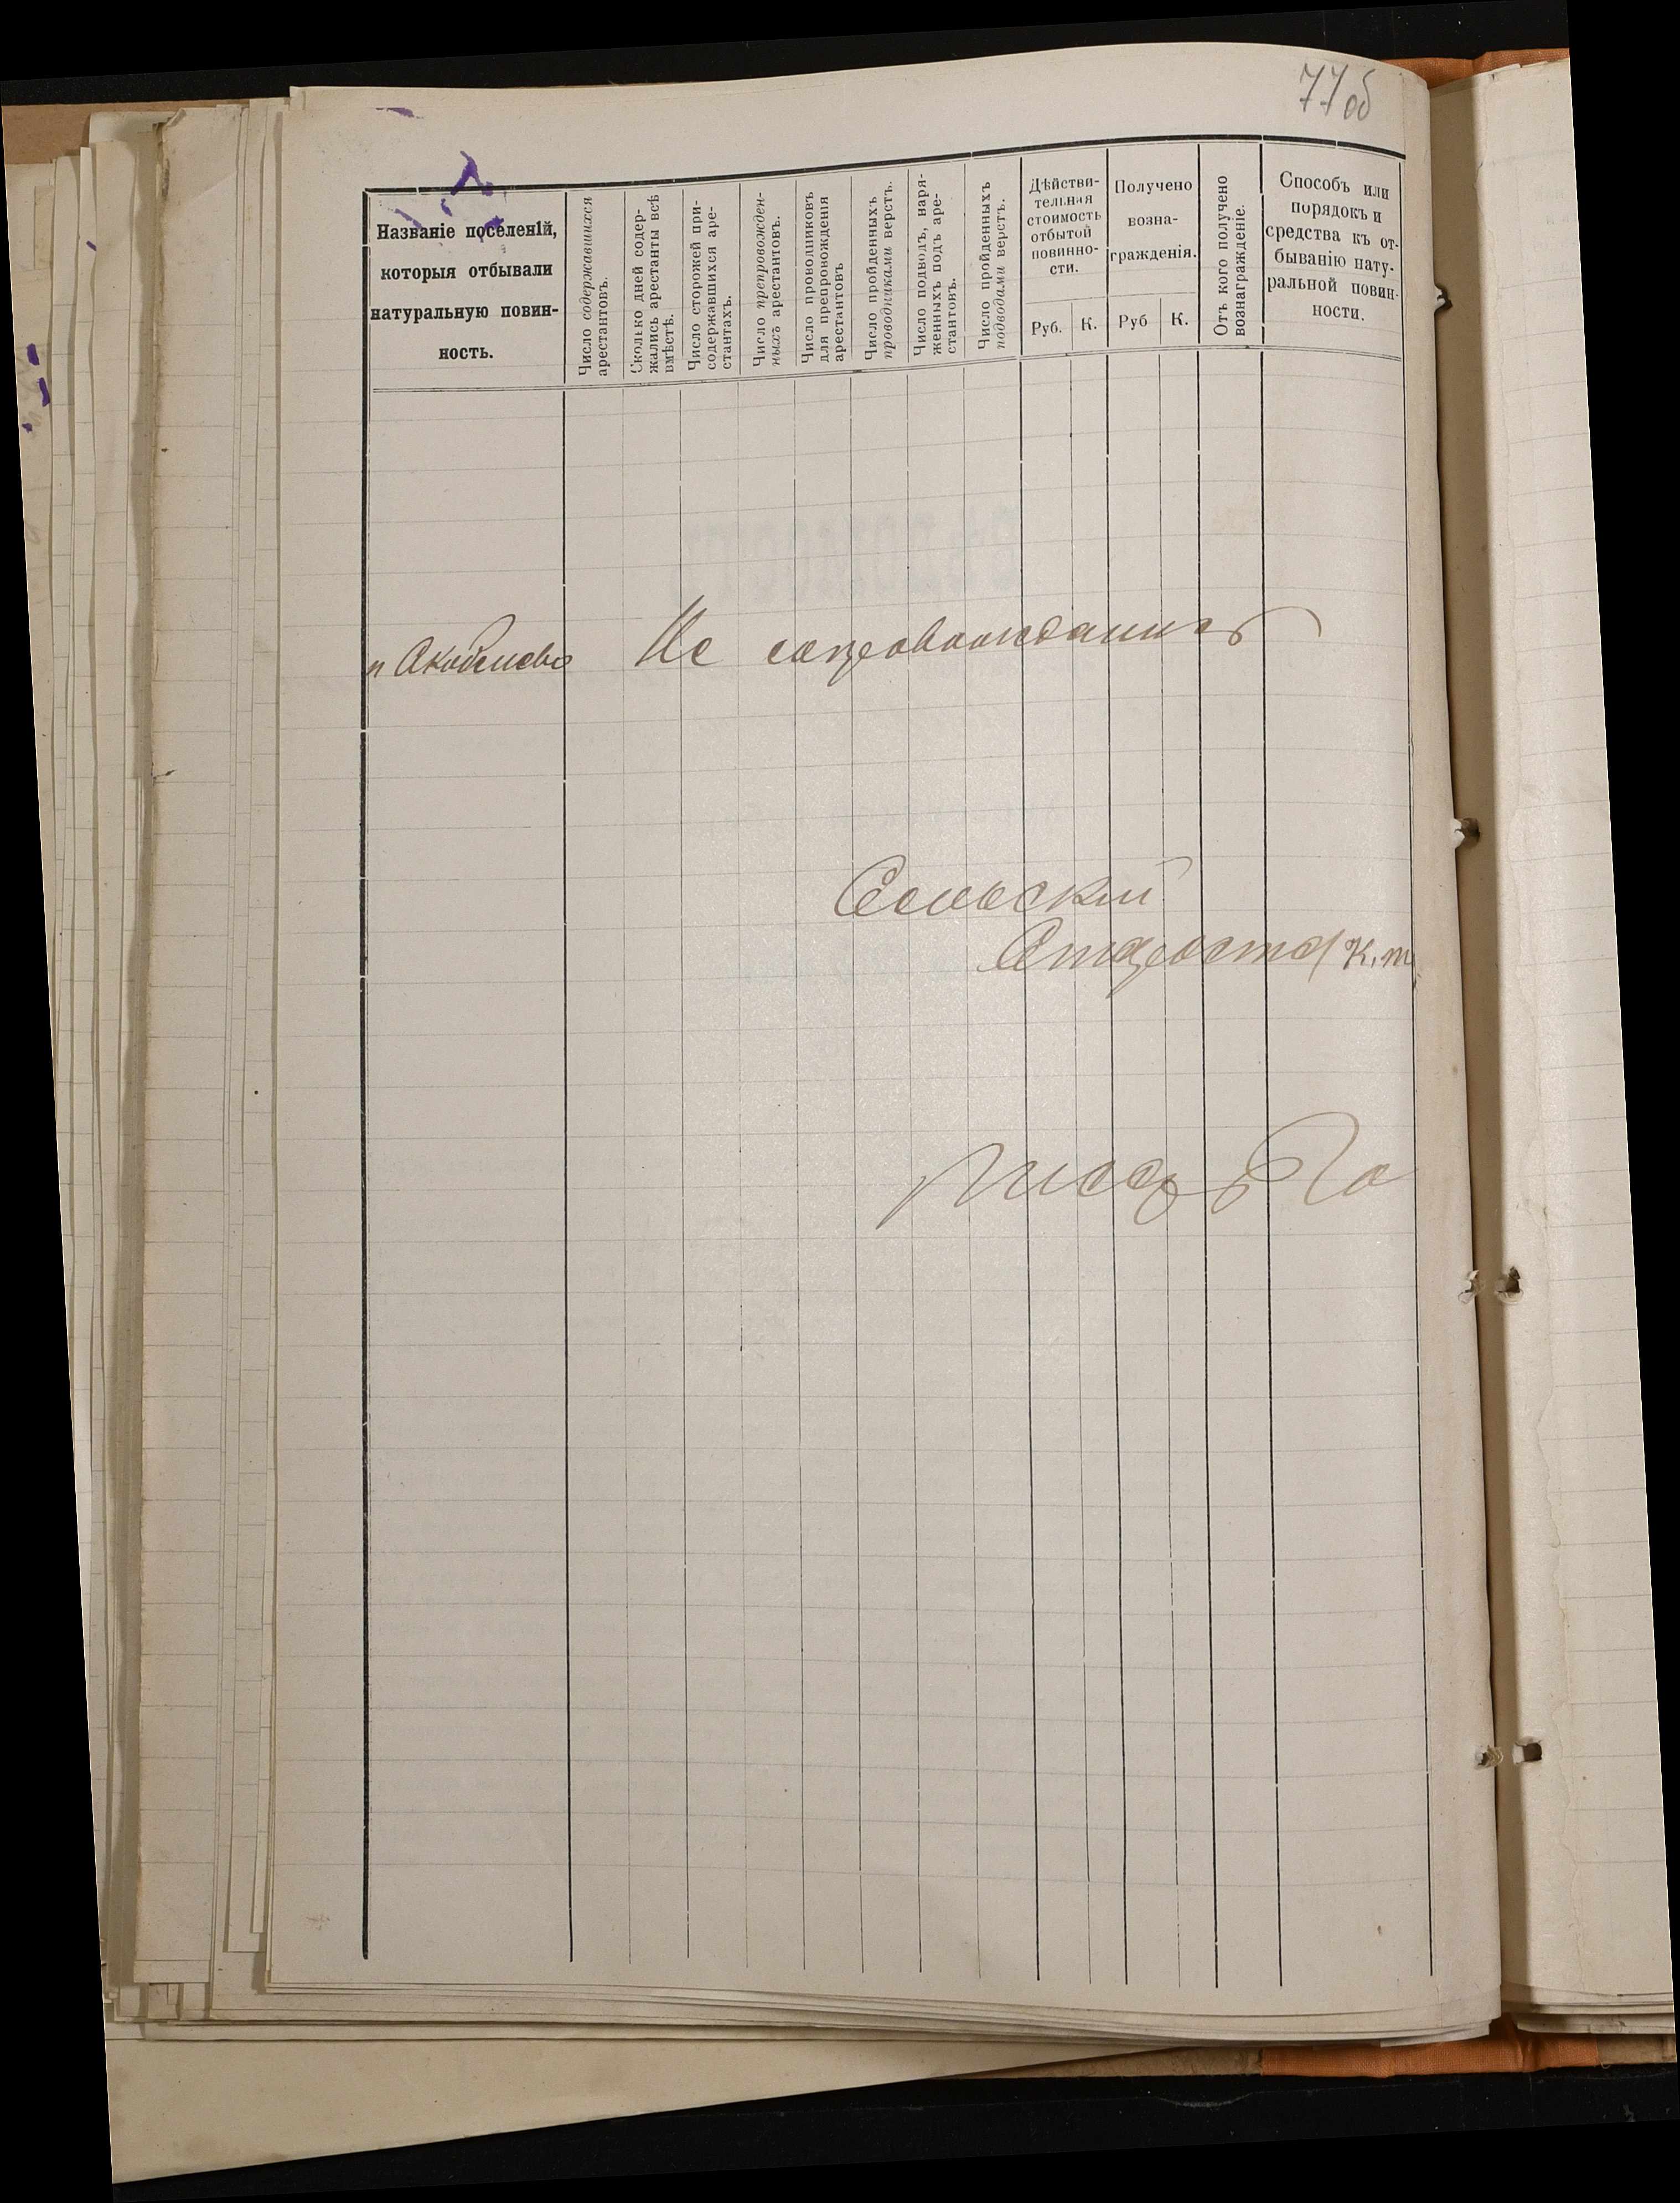 77 об
Названіе поселеній,
которыя отбывали
натуральную повин-
ность.
Число содержавшихся
арестантовъ.
Сколько дней содер-
жались арестанты всѣ
вмѣстѣ.
Число сторожей при-
содержавшихся аре-
стантахъ.
Число препровожден-
ныхъ арестантовъ.
Число проводниковъ
для препровожденія
арестантовъ
Число пройденныхъ
проводниками верстъ.
Число подводъ, наря-
женныхъ подъ аре-
стантовъ.
Число пройденныхъ
подводами верстъ.
Дѣйстви-
тельная
стоимость
отбытой
повинно-
сти.
Руб. К.
Получено
возна-
гражденія.
Руб К.
Отъ кого получено
вознагражденіе.
Способъ или
порядокъ и
средства къ от-
быванію нату-
ральной повин-
ности.
Не
Сельскій
Староста К. т